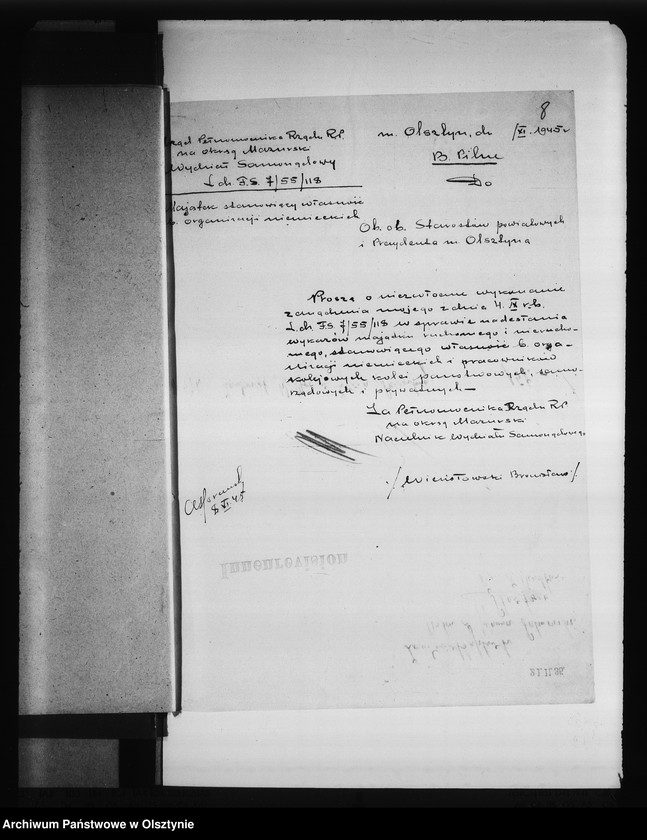 8
rząd Pełnomocnika Rządu R.P.
na okręg Mazurski
Wydział Samorządowy
L.dz. F.S. 7/55/118
m. Olsztyn, dn /XI. 1945 r
B. Pilne
Do
Majątek stanowiący własność
b. organizacji niemieckich
Ob. ob. Starostów powiatowych
i Prezydenta m. Olsztyna
Proszę o niezwłoczne wykonanie
zarządzenia mojego z dnia 4. IX r.b.
L.dz. F.S. 7/55/118 w sprawie nadesłania
wykazów majątku ruchomego i nierucho-
mego, stanowiącego własność b. orga-
nizacji niemieckich i pracowników
kolejowych kolei państwowych, samo-
rządowych i prywatnych.—
Za Pełnomocnika Rządu R.P.
na okręg Mazurski
Naczelnik Wydziału Samorządowego
/ Bronisław /
8 XI 45
Innenrevision
21.11.35
Archiwum Państwowe w Olsztynie